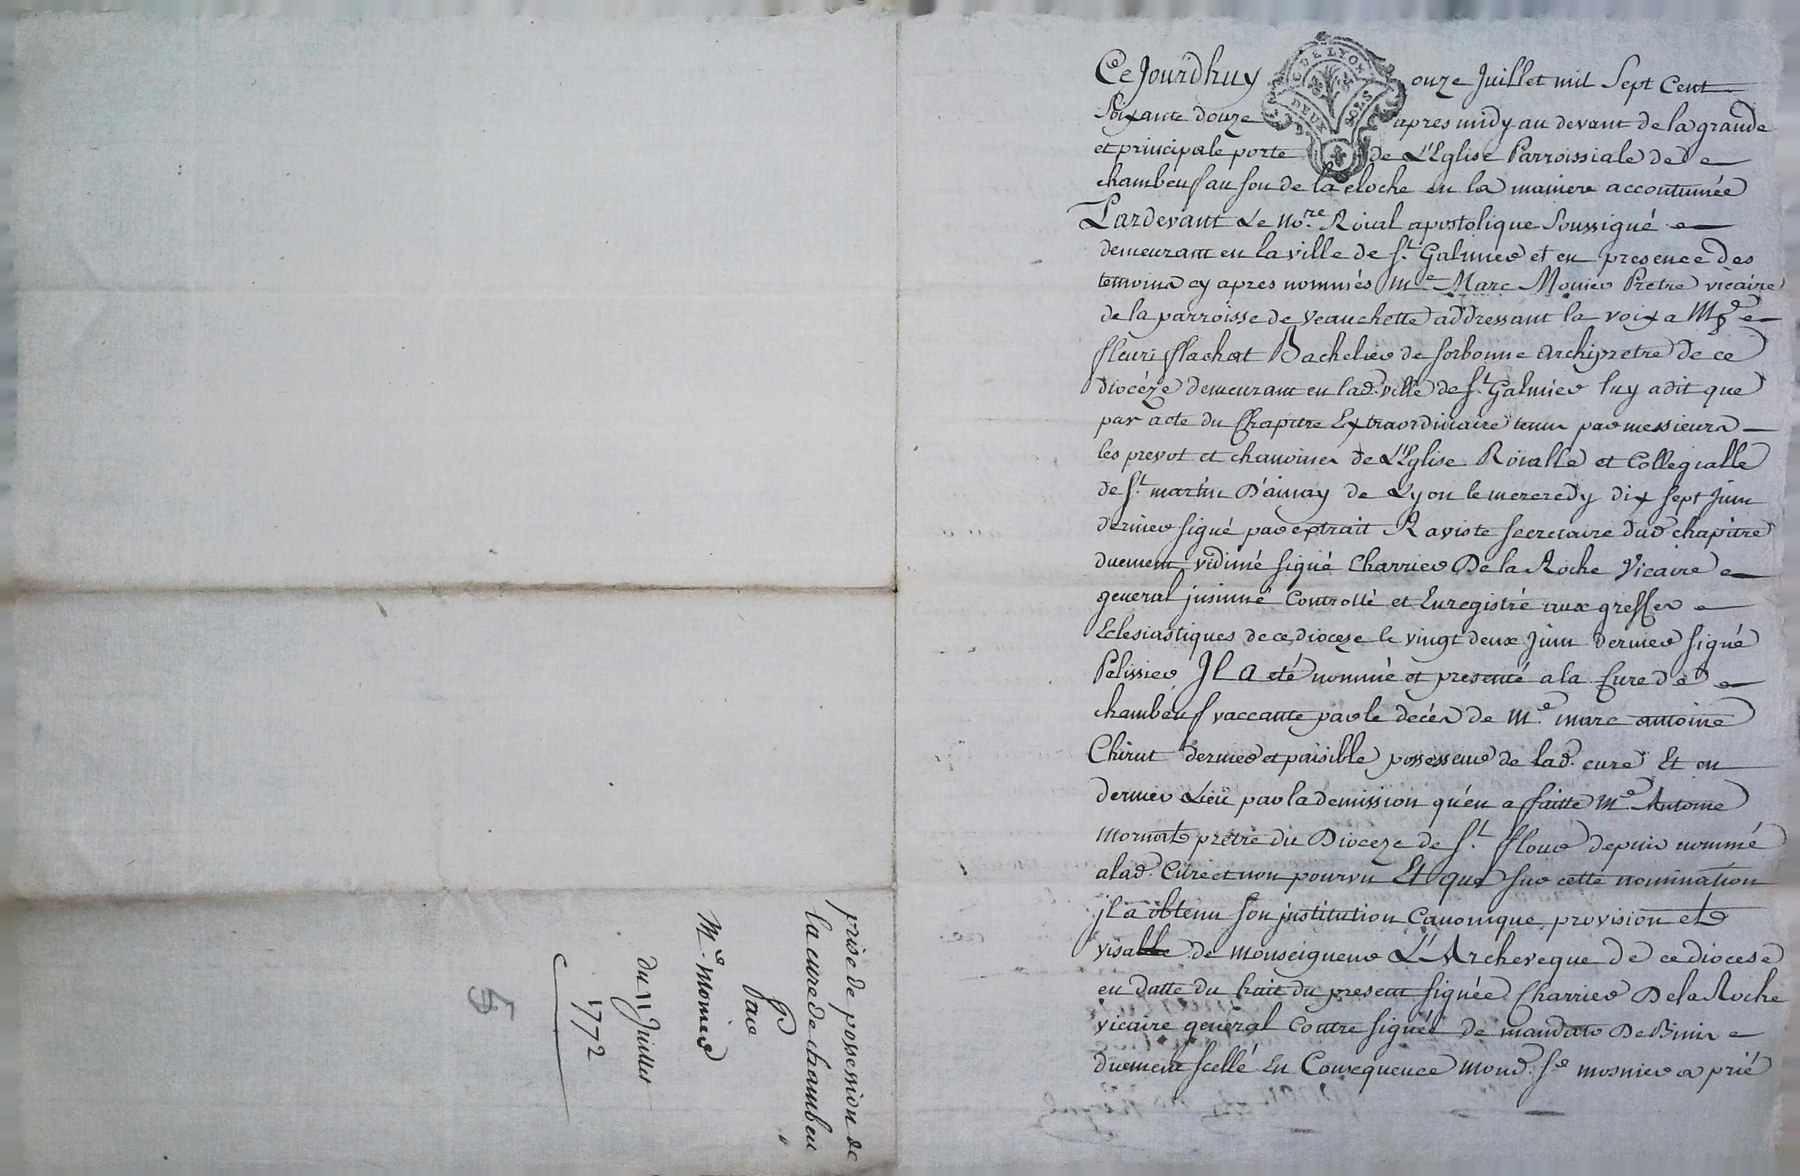 prise de possession de
la cure de chambeu
par
Mʳ monier
du 11 Juillet
1772
5
Ce Jourdhuy onze Juillet mil Sept Cent
Soixante douze apres midy au devant de la grande
et principale porte de L'Eglise Parroissiale de
chambeuf au son de la cloche en la maniere accoutumée
Pardevant Le no.re Roial apostolique Soussigné
demeurant en la ville de s.t Galmier et en presence des
temoins cy apres nommés M.e Marc Monier Pretre vicaire
de la parroisse de veauchette addressant la voix a M.e
fleuri flachat Bachelier de sorbonne archipretre de ce
diocéze demeurant en lad. ville de s.t Galmier luy a dit que
par acte du Chapitre Extraordinaire tenu par messieurs
les prevot et chanoines de L'Eglise Roialle et Collegialle
de s.t martin D'ainay de Lyon le mercredy dix sept Juin
dernier signé par extrait Raviste secretaire dud. chapitre
duement vidimé signé Charrier De la Roche Vicaire
general jnsinué Controllé et Enregistré aux greffes
Eclesiastiques de ce diocese le vingt deux Juin dernier signé
Pelissier Jl a eté nommé et presenté a la Cure de
chambeuf vaccante par le decés de M.e marc antoine
Chirat dernier et paisible possesseur de lad. cure Et en
dernier Lieü par la demission qu'en a faitte M.e Antoine
Mornat pretre du Dioceze de s.t flour depuis nommé
a lad. Cure et non pourvu Et que sur cette nomination
jl a obtenu son jnstitution Canonique provision et
visa de Monseigneur L'Archeveque de ce diocese
en datte du huit du present signée Charrier De la Roche
vicaire general Contre signée de mandato
duement scellé En Consequence mond. s.r mosnier a prié
DE LYON
DEUX SOLS